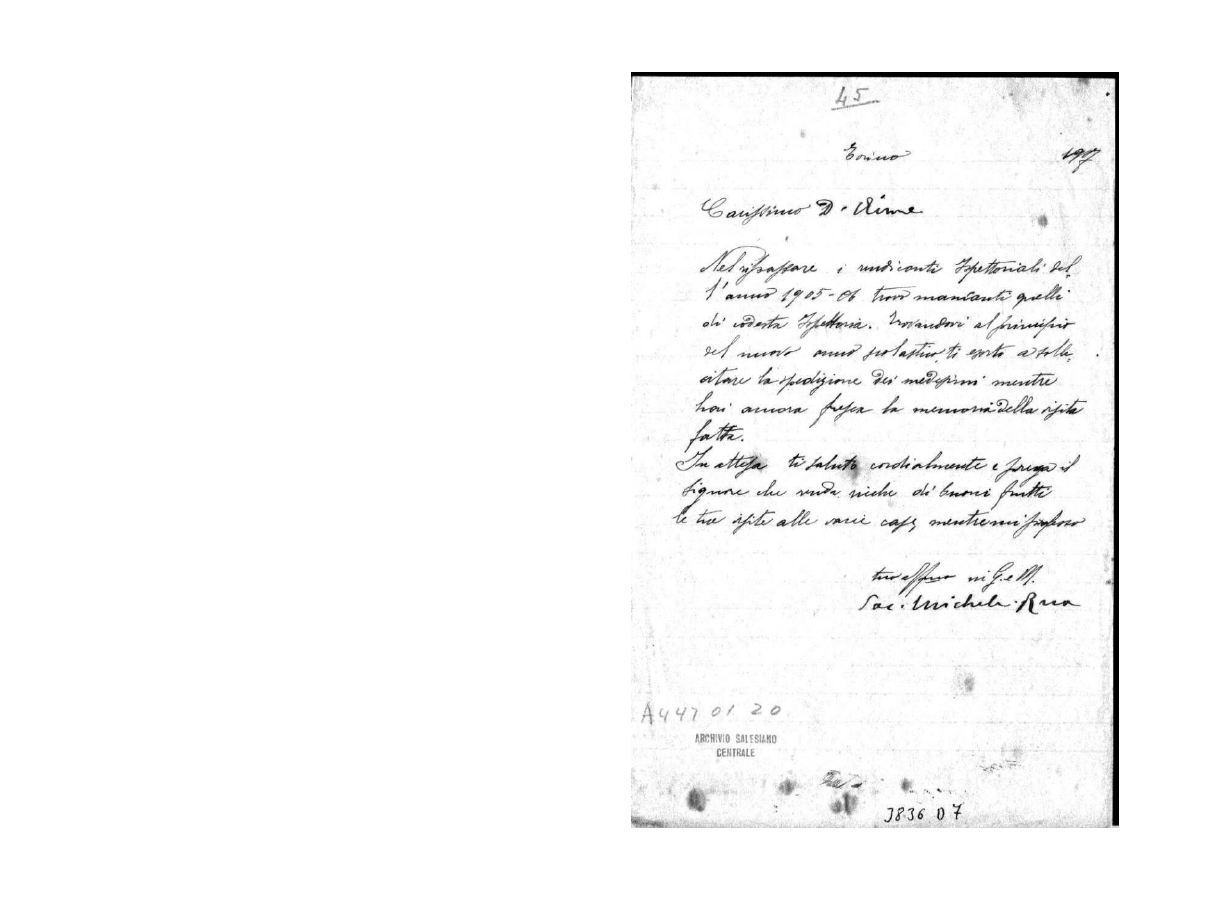 45
Torino 1907
Carissimo D.
Nel ripassare i rendiconti Ispettoriali del-
l'anno 1905-06 trovo mancanti quelli
di codesta Ispettoria. Trovandovi al principio
del nuovo anno scolastico, ti esorto a solle-
citare la spedizione dei medesimi mentre
hai ancora fresca la memoria della visita
fatta.
In attesa ti saluto cordialmente e prego il
Signore che renda ricche di buoni frutti
le tue visite alle varie case, mentre mi professo
tuo affmo in G. e M.
Sac. Michele Rua
A447 01 20
ARCHIVIO SALESIANO
CENTRALE
3836 D 7